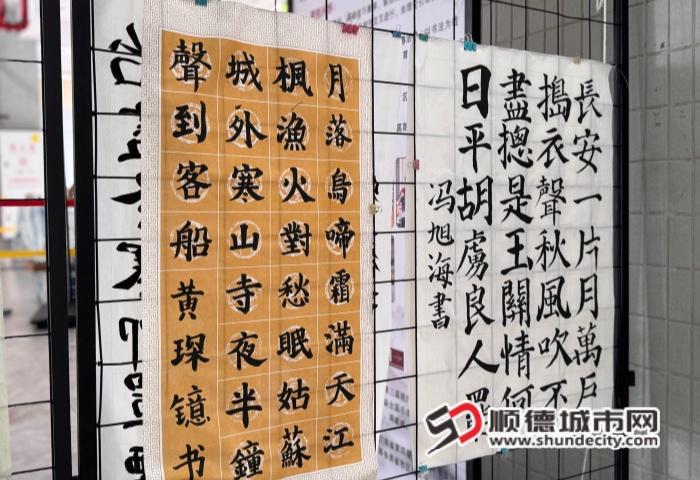 月落烏啼霜滿天江
楓漁火對愁眠姑蘇
城外寒山寺夜半鐘
聲到客船黄琛镱书
長安一片月萬戶
搗衣聲秋風吹不
盡摠是玉關情何
日平胡虜良人罷
冯旭海書
顺德城市网
www.shundecity.com